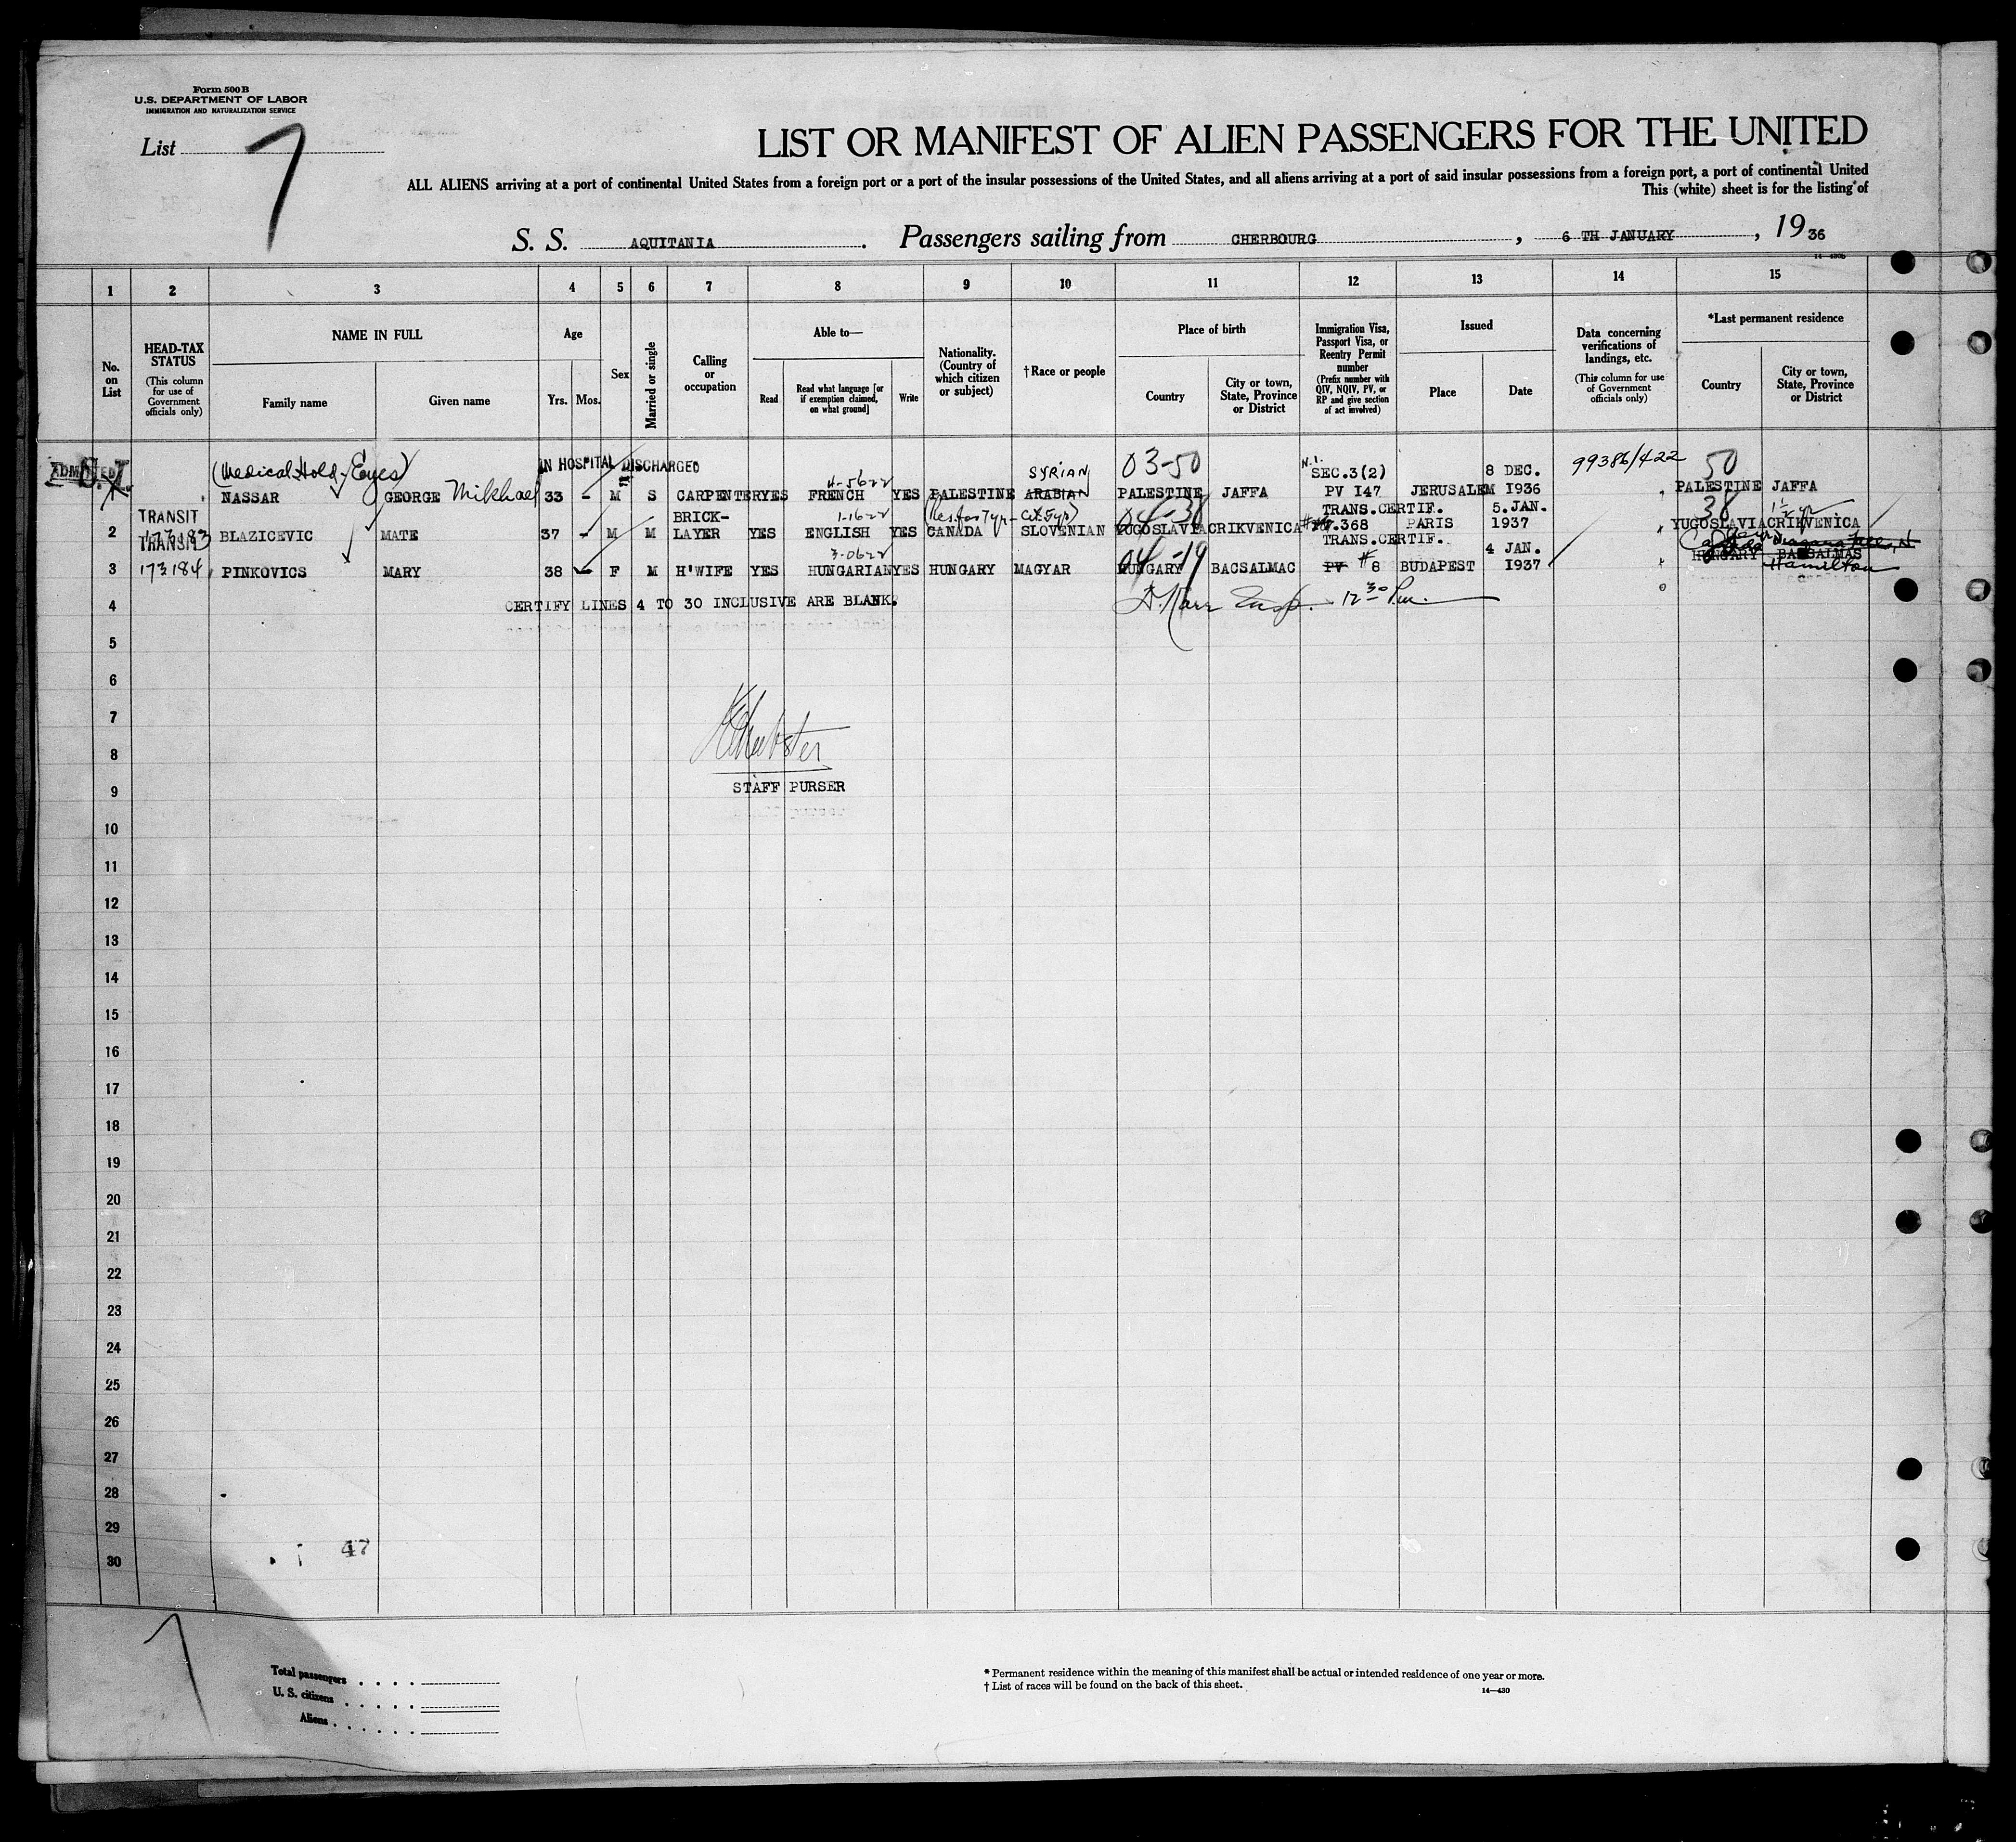 Form 500B
U.S. DEPARTMENT OF LABOR
IMMIGRATION AND NATURALIZATION SERVICE
List 7
LIST OR MANIFEST OF ALIEN PASSENGERS FOR THE UNITED
ALL ALIENS arriving at a port of continental United States from a foreign port or a port of the insular possessions of the United States, and all aliens arriving at a port of said insular possessions from a foreign port, a port of continental United
This (white) sheet is for the listing of
S. S. AQUITANIA. Passengers sailing from CHERBOURG, 6 TH JANUARY, 1936
14—430b
1 2 3 4 5 6 7 8 9 10 11 12 13 14 15
No. on List
HEAD-TAX STATUS
(This column for use of Government officials only)
NAME IN FULL
Family name
Given name
Age
Yrs.
Mos.
Sex
Married or single
Calling or occupation
Able to—
Read
Read what language [or if exemption claimed, on what ground]
Write
Nationality. (Country of which citizen or subject)
†Race or people
Place of birth
Country
City or town, State, Province or District
Immigration Visa, Passport Visa, or Reentry Permit number
(Prefix number with QIV, NQIV, PV, or RP and give section of act involved)
Issued
Place
Date
Data concerning verifications of landings, etc.
(This column for use of Government officials only)
*Last permanent residence
Country
City or town, State, Province or District
ADMITTED S.I. (Medical Hold-Eyes) IN HOSPITAL DISCHARGED 4-5622 SYRIAN 03-50 N.I. SEC.3(2) 8 DEC. 99386/422 50
NASSAR GEORGE Mikhael 33 - M S CARPENTER YES FRENCH YES PALESTINE ARABIAN PALESTINE JAFFA PV I47 JERUSALEM I936 PALESTINE JAFFA
TRANSIT BRICK- 1-1622 (Res. for 7yr - cit. 5yr) 04-38 TRANS.CERTIF. 5.JAN. 38 1½ yr
2 173183 BLAZICEVIC MATE 37 - M M LAYER YES ENGLISH YES CANADA SLOVENIAN YUGOSLAVIA CRIKVENICA .368 PARIS 1937 YUGOSLAVIA CRIKVENICA
TRANSIT 3-0622 04-19 TRANS.CERTIF. 4 JAN. Canada Niagara Falls, N
3 173184 PINKOVICS MARY 38 - F M H'WIFE YES HUNGARIAN YES HUNGARY MAGYAR HUNGARY BACSALMAC PV # 8 BUDAPEST I937 HUNGARY BACSALMAS
Hamilton
4 CERTIFY LINES 4 TO 30 INCLUSIVE ARE BLANK. 12 30 Pm.
5
6
7
8
STAFF PURSER
9
10
11
12
13
14
15
16
17
18
19
20
21
22
23
24
25
26
27
28
29
30
47
7
Total passengers
U. S. citizens
Aliens
* Permanent residence within the meaning of this manifest shall be actual or intended residence of one year or more.
† List of races will be found on the back of this sheet.
14—430